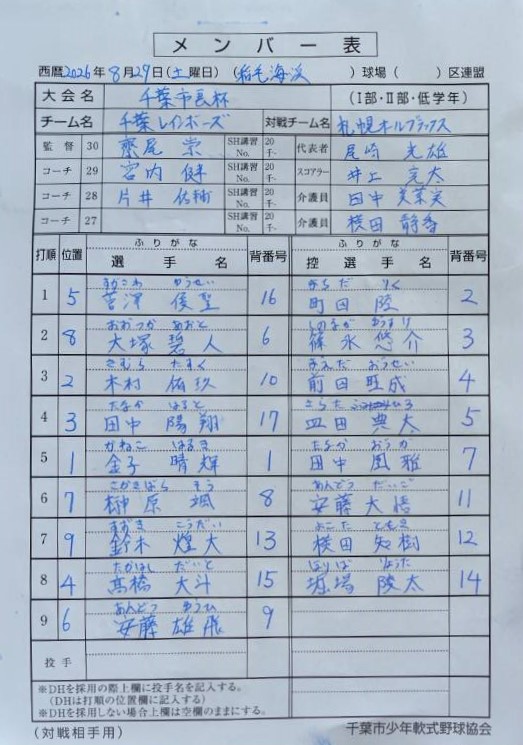 メンバー表
西暦2026年8月29日(土曜日)(稲毛海浜)球場( )区連盟
大会名 千葉市長杯 (Ⅰ部・Ⅱ部・低学年)
チーム名 千葉レインボーズ 対戦チーム名 札幌オールブラックス
監督 30 齋尾 崇 SH講習No. 20 千- 代表者 尾崎 光雄
コーチ 29 宮内 健 SH講習No. 20 千- スコアラー 井上 亮太
コーチ 28 片井 佑輔 SH講習No. 20 千- 介護員 田中 美菜実
コーチ 27 SH講習No. 20 千- 介護員 横田 静香
打順 位置 ふりがな 選手名 背番号 ふりがな 控選手名 背番号
すがさわ ゆうせい まちだ りく
1 5 菅澤 侑聖 16 町田 陸 2
おおつか あおと しのなが ゆうすけ
2 8 大塚 碧人 6 篠永 悠介 3
きむら たすく まえだ おうせい
3 2 木村 佑玖 10 前田 旺成 4
たなか はると さらた
4 3 田中 陽翔 17 皿田 典太 5
かねこ はるき たなか おうが
5 1 金子 晴輝 1 田中 凰雅 7
さかきばら そう あんどう だいご
6 7 榊原 颯 8 安藤 大悟 11
すずき こうだい よこた ともき
7 9 鈴木 煌大 13 横田 知樹 12
たかはし だいと ほりば りょうた
8 4 髙橋 大斗 15 堀場 陵太 14
あんどう ゆうひ
9 6 安藤 雄飛 9
投手
※DHを採用の際上欄に投手名を記入する。
(DHは打順の位置欄に記入する)
※DHを採用しない場合上欄は空欄のままにする。
(対戦相手用) 千葉市少年軟式野球協会